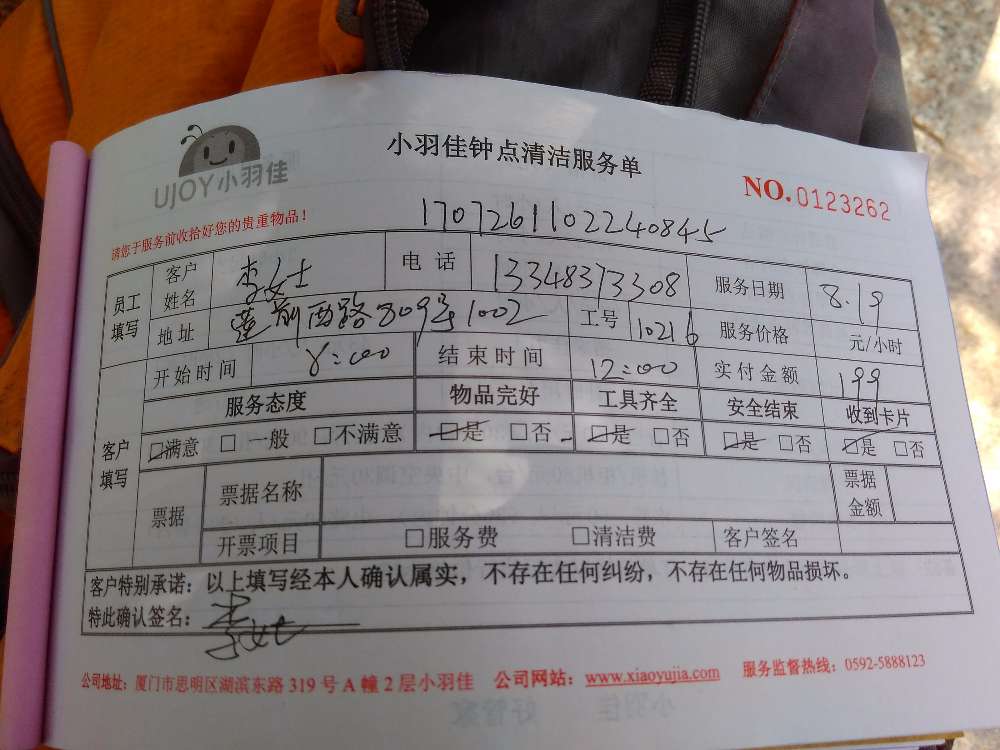 UJOY小羽佳
小羽佳钟点清洁服务单
NO.0123262
请您于服务前收拾好您的贵重物品！
1707261102240845
员工填写 客户姓名 李女士 电话 13348373308 服务日期 8.19
地址 莲前西路809号1002 工号 10216 服务价格 元/小时
客户填写 开始时间 8:00 结束时间 12:00 实付金额 199
服务态度 物品完好 工具齐全 安全结束 收到卡片
☑满意 □一般 □不满意 ☑是 □否 ☑是 □否 ☑是 □否 ☑是 □否
票据 票据名称 票据金额
开票项目 □服务费 □清洁费 客户签名
客户特别承诺：以上填写经本人确认属实，不存在任何纠纷，不存在任何物品损坏。
特此确认签名：
公司地址：厦门市思明区湖滨东路 319 号 A 幢 2 层小羽佳 公司网站：www.xiaoyujia.com 服务监督热线：0592-5888123